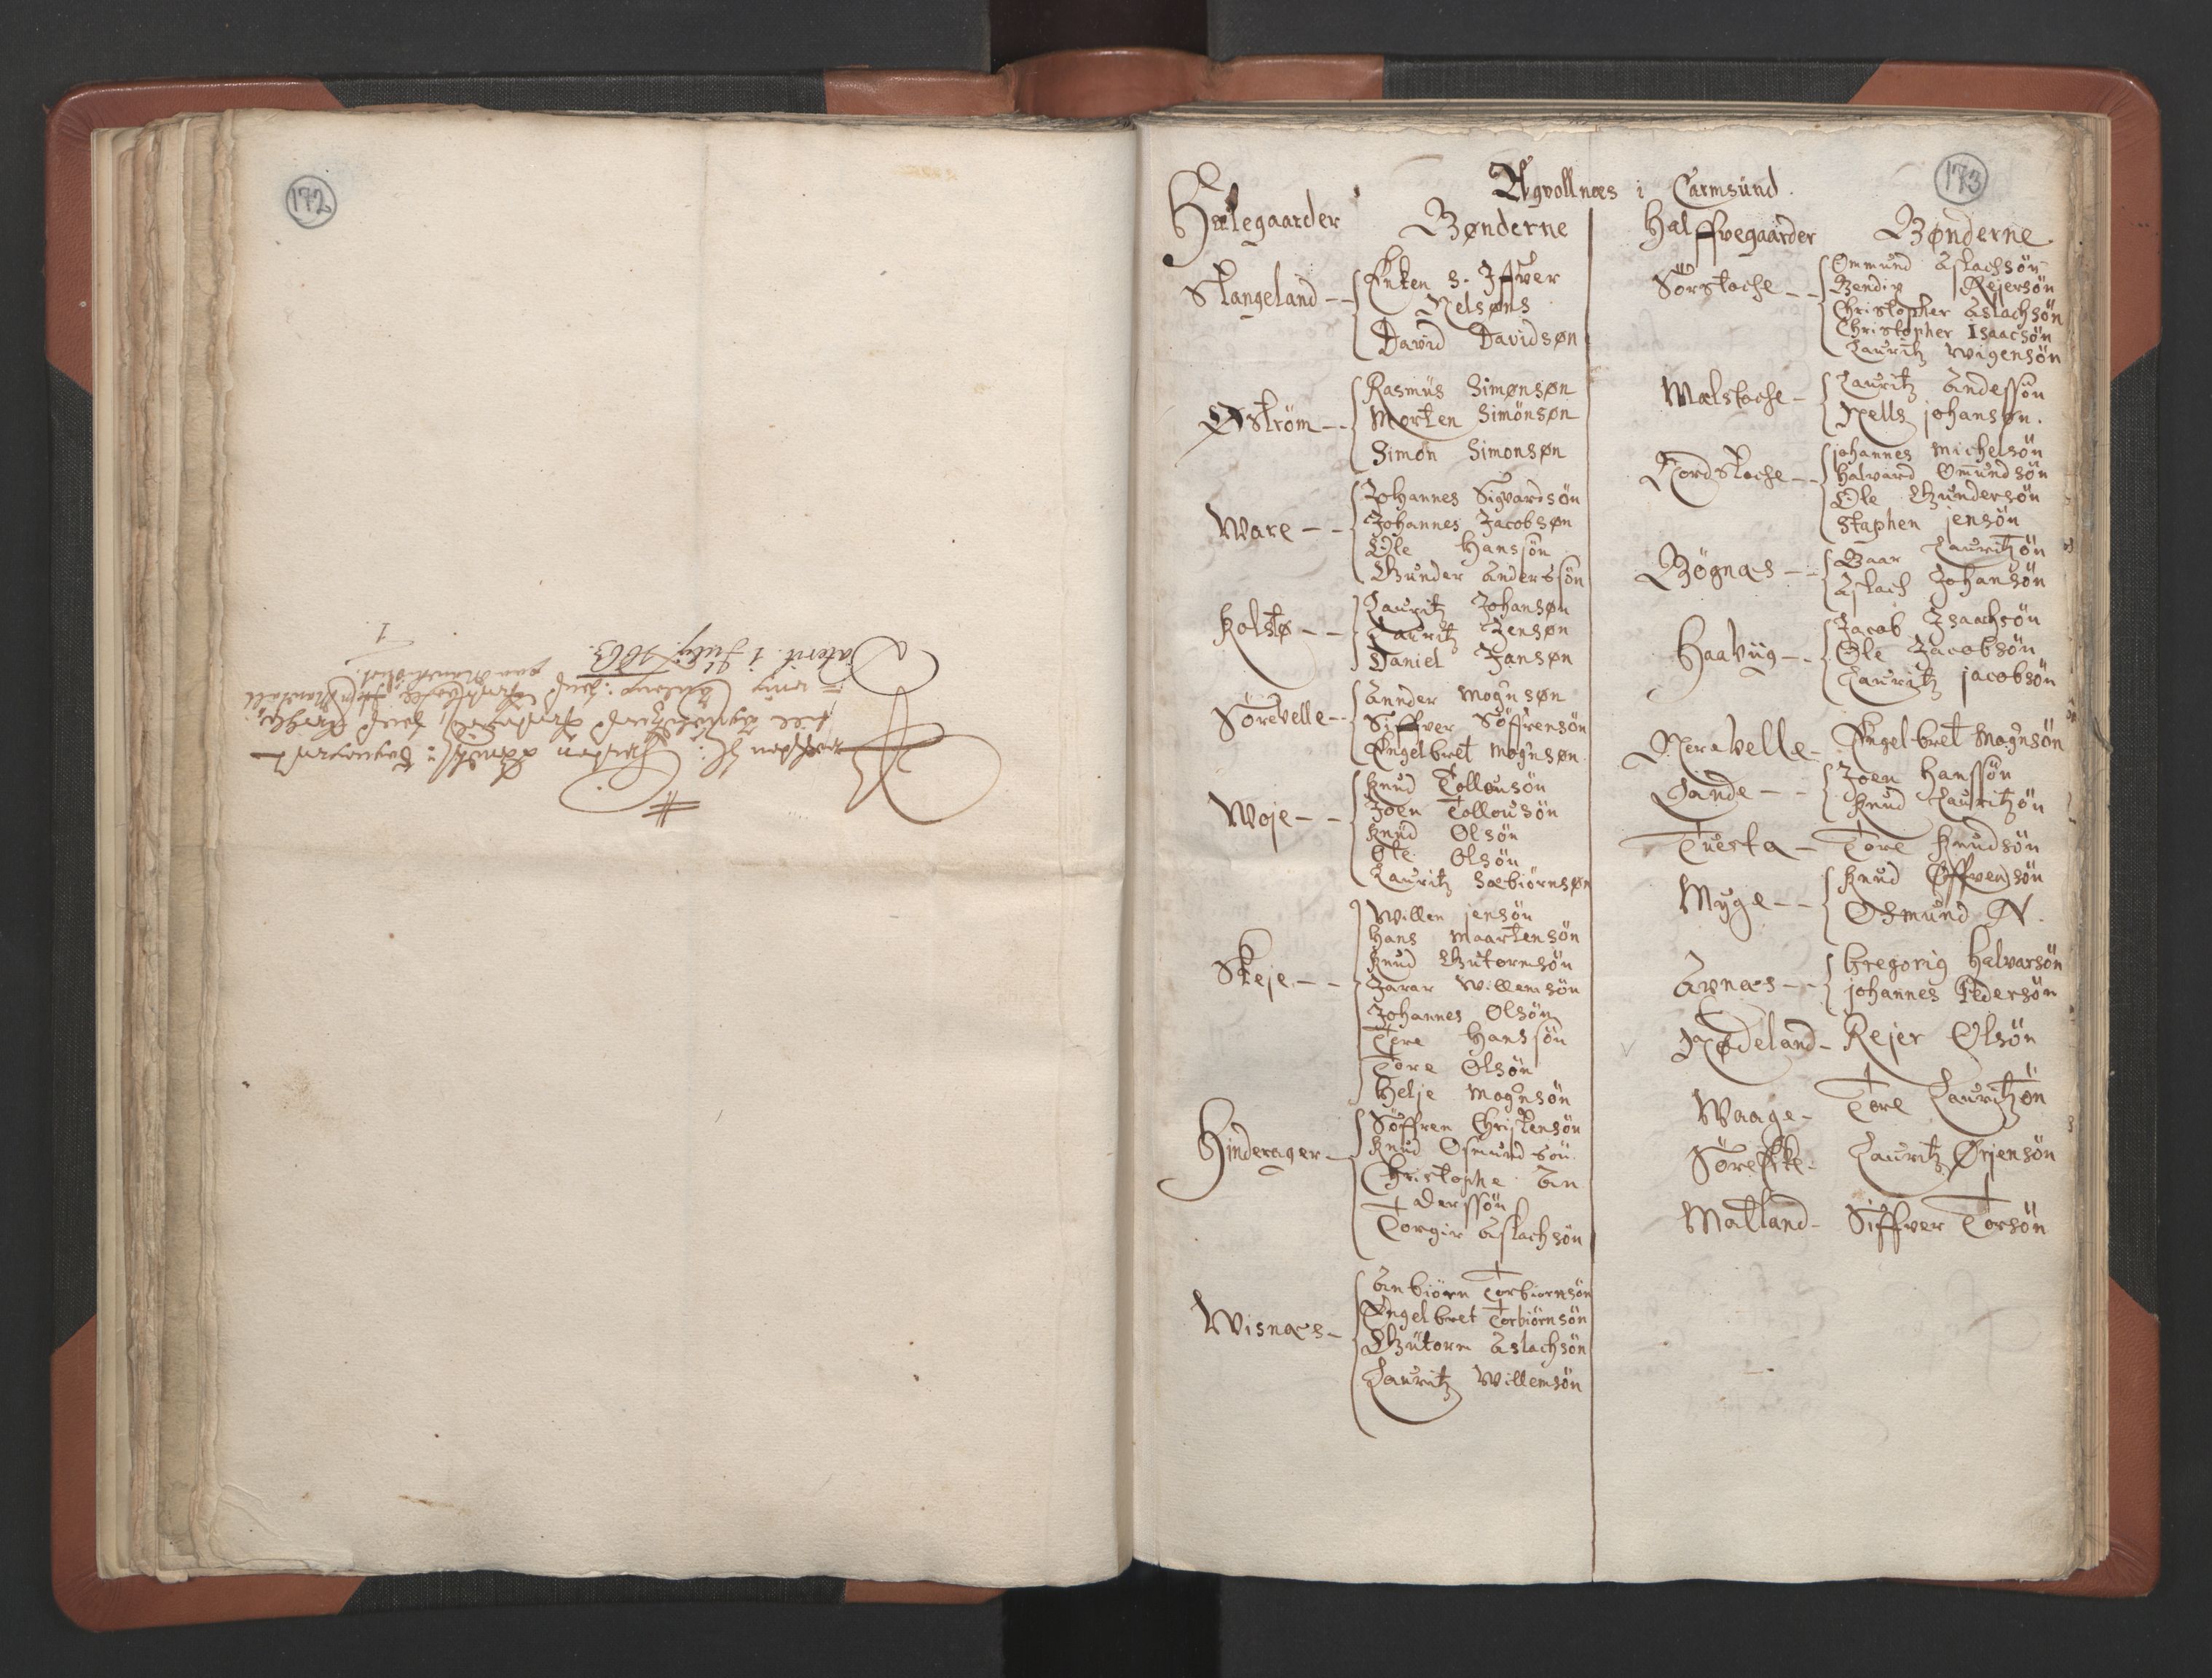 172
Daterit. 1 July 1663.
173
Agvollnæs i Carmsünd.
Hælegaarder Bønderne
Stangeland -- Enken S. Iffver
Nelsøns
David Davidsøn
Øström -- Rasmüs Simønsøn
Morten Simönsøn
Simon Simonsøn
Ware -- Johannes Sigvardsön
Johannes Jacobsøn
Ole Hanssön
Gunder Anderssön
Kolstø -- Lauritz Johansøn
Lauritz Jensøn
Daniel Jansøn
Sörevelle -- Annder Mognsøn
Siffver Söffrensön
Engelbret Mognsøn.
Woje -- Knud Tollousön
Joen Tollousön
Knüd Olsön
Ole Olsön
Lauritz Sæbiörnsøn
Skeje -- Willen jensön
Hans Maartensön
Knud Gutormsön
Jarar Willemsön
Johannes Olsön
Tore Hanssön
Tore Olsön
Helje Mognsön
Hinderager - Söffren Christensön
Knud Osmundsön.
Christophe An
derssön
Torgir Aslachsön
Wisnæs - Anbiörn Torbiørnsön
Engelbret Torbiörnsön
Gütorm Aslachsön
Lauritz Willemsön
Halffvegaarder Bønderne.
Sörstoche -- Ommund Aslachsön
Bendix Rejersön
Christopher Aslachsön
Christopher Isaacsön
Lauritz Wigensön
Mælstoche - Lauritz Anderssön
Nells johansøn.
Nordstoche -- johannes Michelsön
Halvard Omundsön
Ole Gundersön
Staphen jensön
Bögnæs -- Baar Lauritzön
Aslach Johansön
Haaviig -- Jacob Isaachsön
Ole Jacobsön
Lauritz jacobsön
Nerevelle - Engelbret Mognsön
Lande -- Joen Hanssön
Knud Lauritzön
Tuesta - Tore Knudsön
Myge -- Knud Øffversön
Osmund N.
Avnæs -- Gregorig Halvarsön
johannes Pedersön
Nødeland - Rejer Olsön
Waage - Tore Lauritzön
Lauritz Ørjensön
Matland - Siffver Torsön